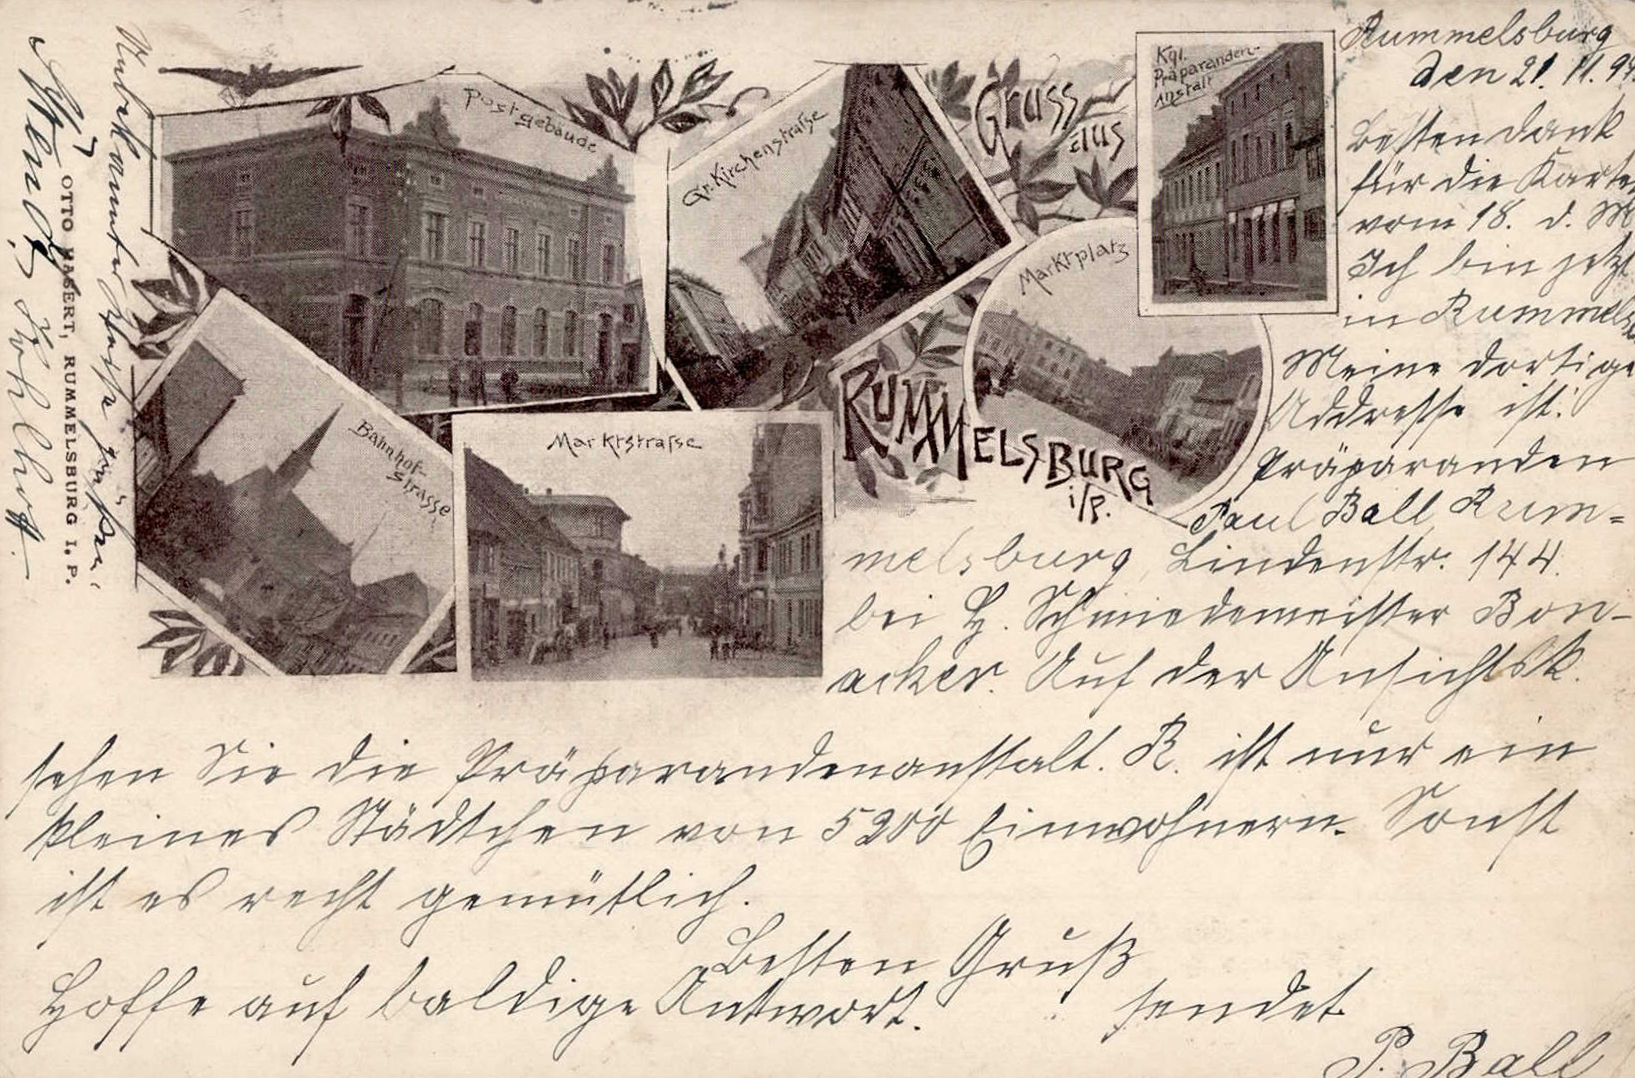 Postgebäude
Gr. Kirchenstrasse
Gruss
aus
Kgl.
Präparanden-
Anstalt
Marktplatz
RUMMELSBURG
i/P.
Bahnhof-
Strasse
Marktstrasse
OTTO HASERT, RUMMELSBURG I. P.
Rummelsburg
den 21. 11. 97.
Besten Dank
für die Karte
vom 18. d. M
Ich bin jetzt
in Rummels
Meine dortige
Addresse ist:
Präparanden
Paul Ball Rum=
melsburg, Lindenstr. 144.
bei H. Schmiedemeister Bon-
acker. Auf der Ansichtsk.
sehen Sie die Präparandenanstalt. R. ist nur ein
kleines Städtchen von 5200 Einwohnern. Sonst
ist es recht gemütlich.
Besten Gruß
Hoffe auf baldige Antwort. sendet
P. Ball
Unbekannter Weise